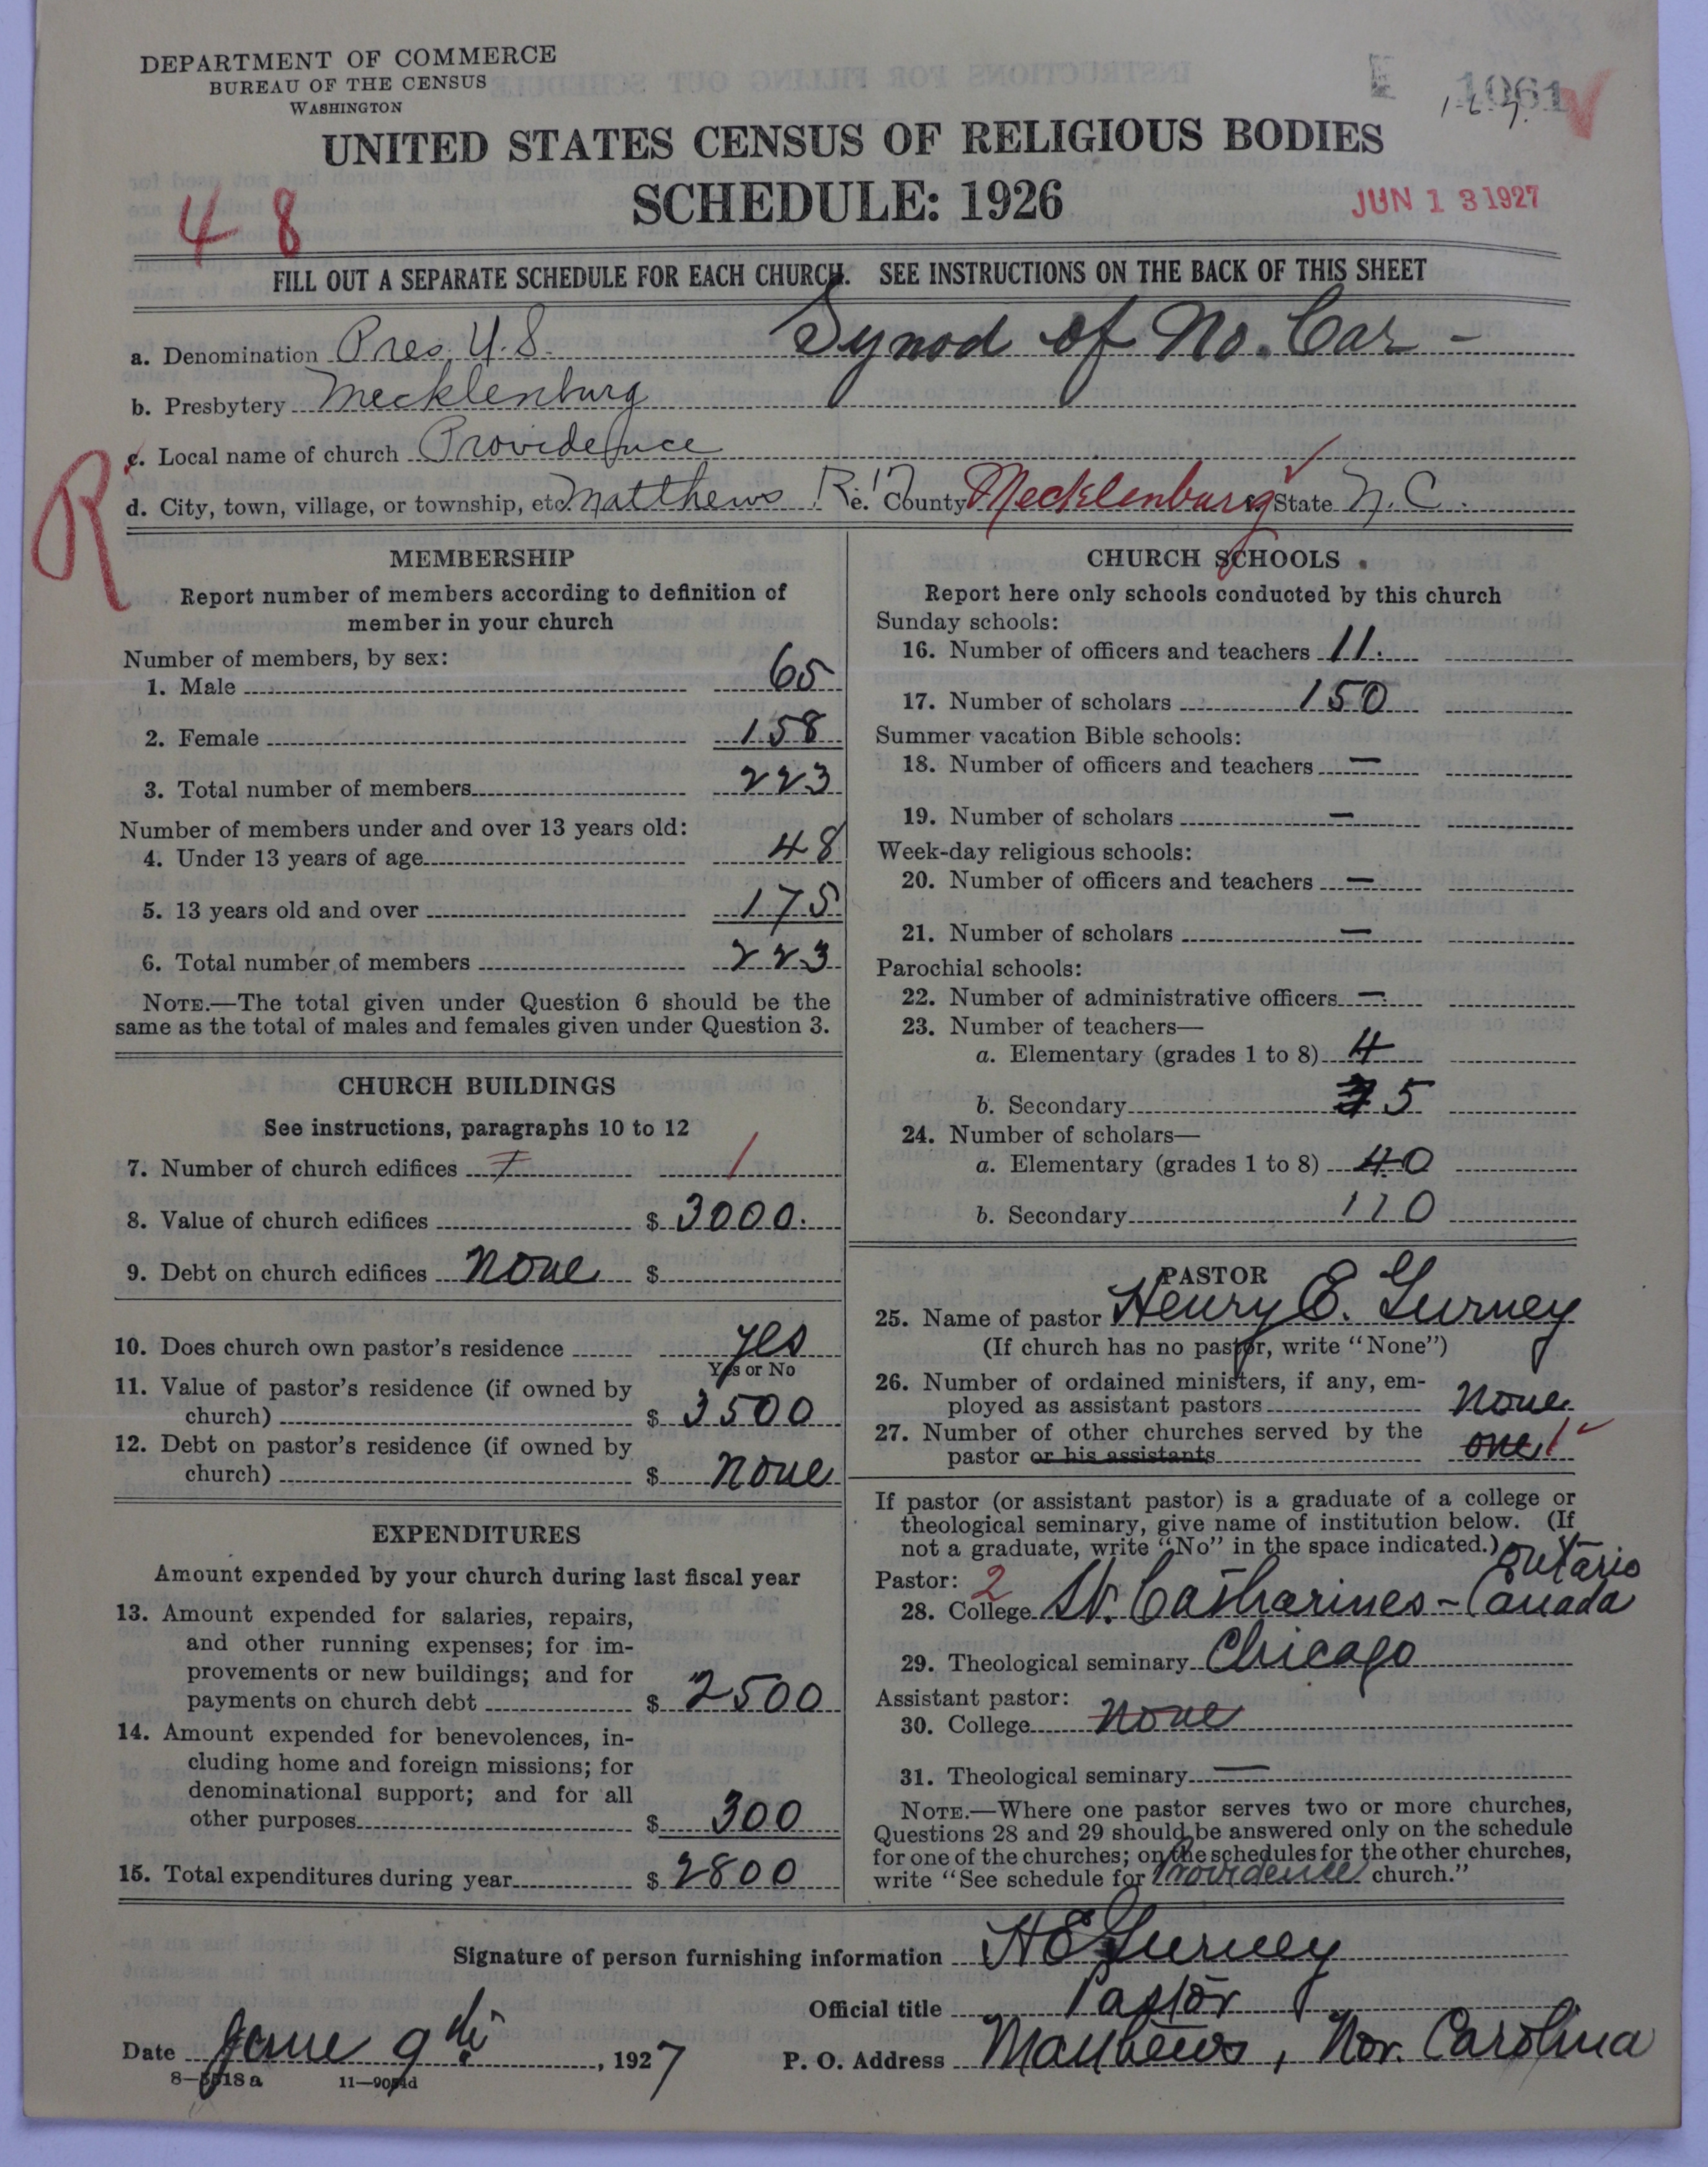 DEPARTMENT OF COMMERCE
BUREAU OF THE CENSUS
WASHINGTON
E 1061
UNITED STATES CENSUS OF RELIGIOUS BODIES
SCHEDULE: 1926
JUN 13 1927
4 8
FILL OUT A SEPARATE SCHEDULE FOR EACH CHURCH. SEE INSTRUCTIONS ON THE BACK OF THIS SHEET
a. Denomination Pres. U.S. Synod of No. Car -
b. Presbytery Mecklenburg
c. Local name of church Providence
R
d. City, town, village, or township, etc. Matthews R. 17 e. County Mecklenburg State N.C.
MEMBERSHIP
Report number of members according to definition of
member in your church
Number of members, by sex:
1. Male 65
2. Female 158
3. Total number of members 223
Number of members under and over 13 years old:
4. Under 13 years of age 48
5. 13 years old and over 175
6. Total number of members 223
NOTE.—The total given under Question 6 should be the
same as the total of males and females given under Question 3.
CHURCH BUILDINGS
See instructions, paragraphs 10 to 12
7. Number of church edifices 1 1
8. Value of church edifices $ 3000.
9. Debt on church edifices None $
10. Does church own pastor's residence yes
Yes or No
11. Value of pastor's residence (if owned by
church) $ 3500
12. Debt on pastor's residence (if owned by
church) $ None
EXPENDITURES
Amount expended by your church during last fiscal year
13. Amount expended for salaries, repairs,
and other running expenses; for im-
provements or new buildings; and for
payments on church debt $ 2500
14. Amount expended for benevolences, in-
cluding home and foreign missions; for
denominational support; and for all
other purposes $ 300
15. Total expenditures during year $ 2800
CHURCH SCHOOLS
Report here only schools conducted by this church
Sunday schools:
16. Number of officers and teachers 11.
17. Number of scholars 150
Summer vacation Bible schools:
18. Number of officers and teachers —
19. Number of scholars —
Week-day religious schools:
20. Number of officers and teachers —
21. Number of scholars —
Parochial schools:
22. Number of administrative officers —
23. Number of teachers—
a. Elementary (grades 1 to 8) 4
b. Secondary 5
24. Number of scholars—
a. Elementary (grades 1 to 8) 40
b. Secondary 110
PASTOR
25. Name of pastor Henry E. Gurney
(If church has no pastor, write "None")
26. Number of ordained ministers, if any, em-
ployed as assistant pastors None
27. Number of other churches served by the
pastor or his assistants one 1
If pastor (or assistant pastor) is a graduate of a college or
theological seminary, give name of institution below. (If
not a graduate, write "No" in the space indicated.)
Pastor: 2 Ontario
28. College St. Catharines - Canada
29. Theological seminary Chicago
Assistant pastor:
30. College None
31. Theological seminary —
NOTE.—Where one pastor serves two or more churches,
Questions 28 and 29 should be answered only on the schedule
for one of the churches; on the schedules for the other churches,
write "See schedule for Providence church."
Signature of person furnishing information H E Gurney
Official title Pastor
Date June 9th, 1927 P. O. Address Matthews, Nor. Carolina
8—5518a 11—9054d